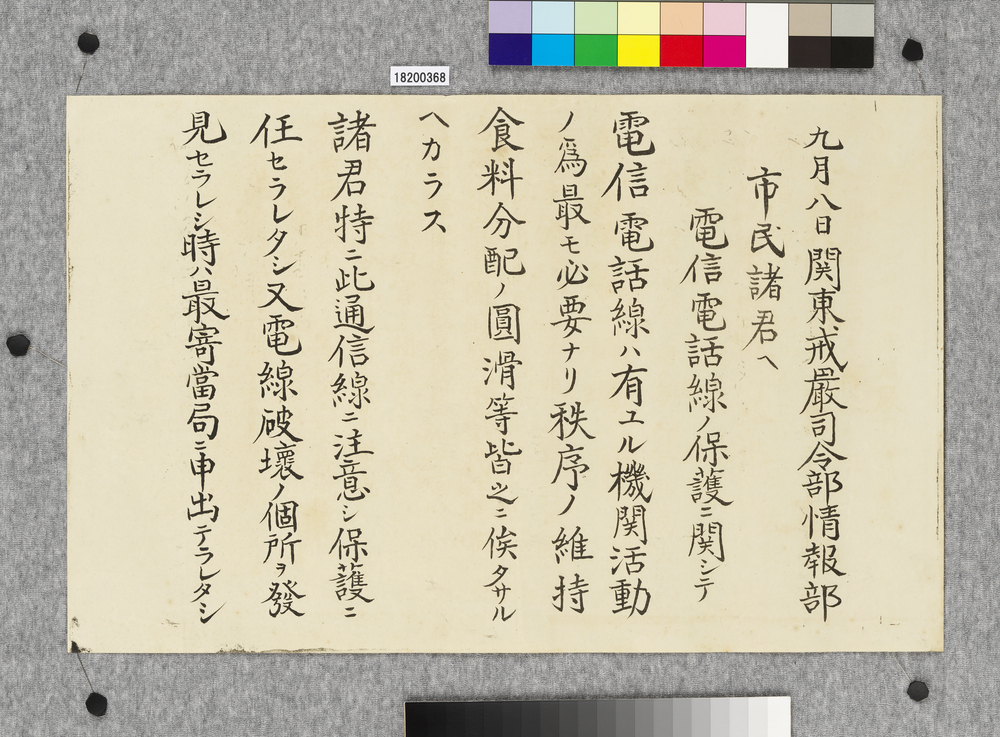 18200368
九月八日関東戒嚴司令部情報部
市民諸君へ
電信電話線ノ保護ニ関シテ
電信電話線ハ有ユル機関活動
ノ爲最モ必要ナリ秩序ノ維持
食料分配ノ圓滑等皆之ニ俟タサル
ヘカラス
諸君特ニ此通信線ニ注意シ保護ニ
任セラレタシ又電線破壞ノ個所ヲ發
見セラレシ時ハ最寄當局ニ申出テラレタシ